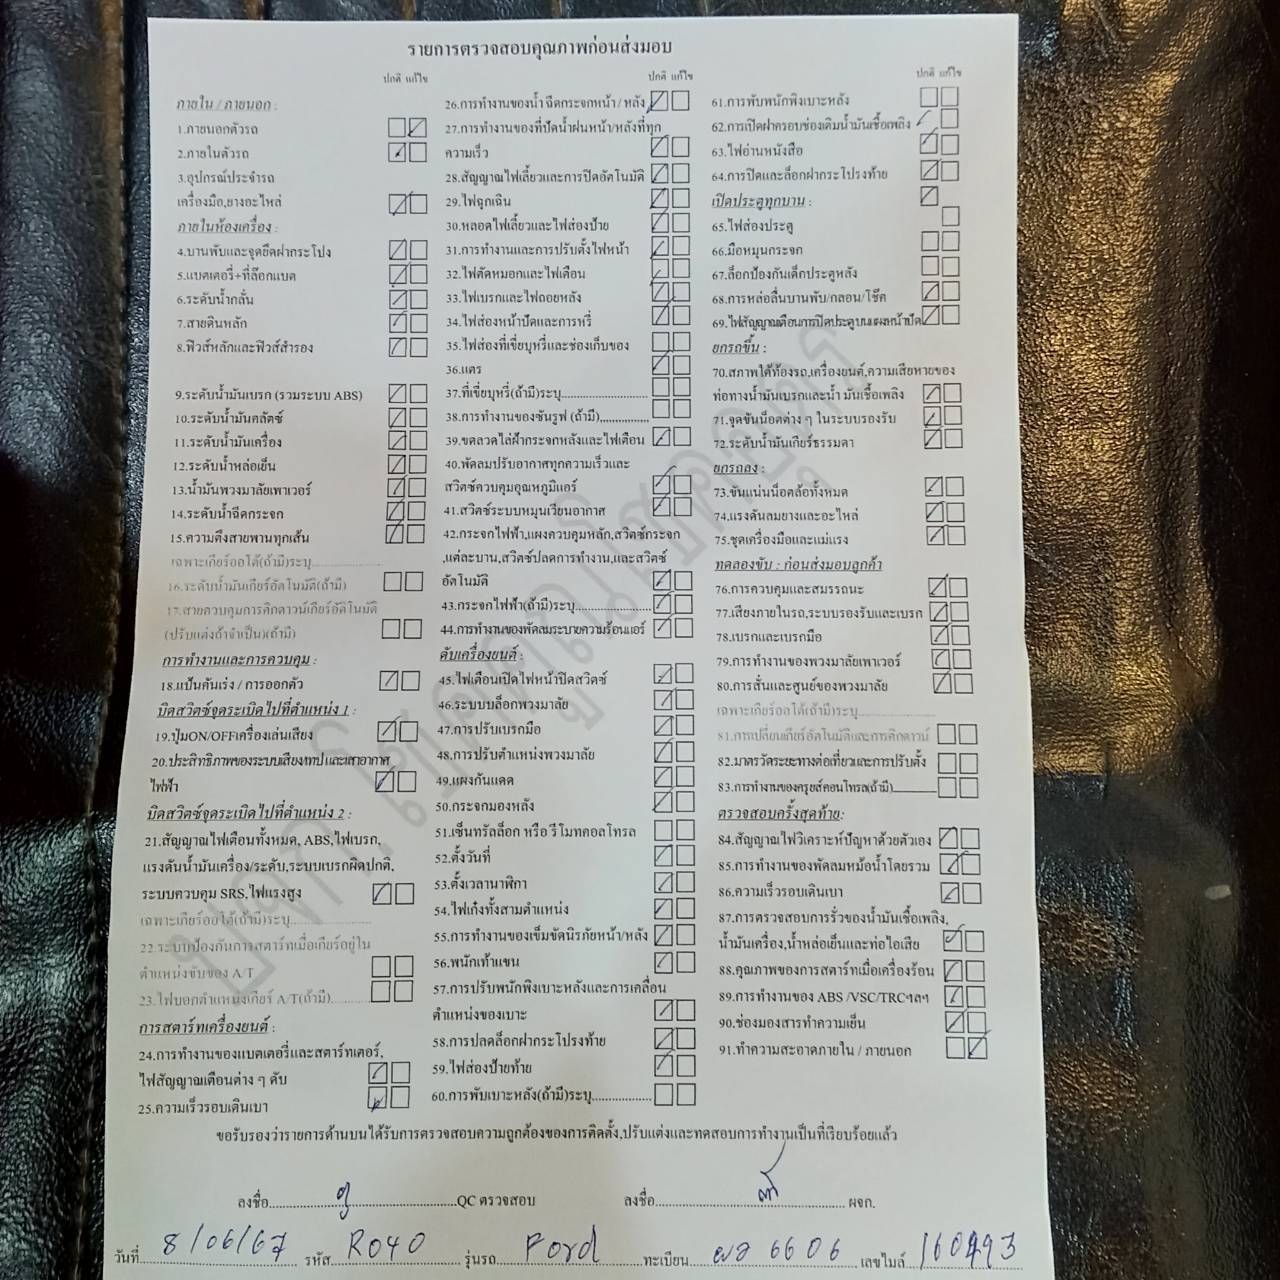 รายการตรวจสอบคุณภาพก่อนส่งมอบ
ปกติ แก้ไข
ภายใน / ภายนอก :
1.ภายนอกตัวรถ
2.ภายในตัวรถ
3.อุปกรณ์ประจำรถ
เครื่องมือ,ยางอะไหล่
ภายในห้องเครื่อง :
4.บานพับและจุดยึดฝากระโปรง
5.แบตเตอรี่+ที่ล๊อกแบต
6.ระดับน้ำกลั่น
7.สายดินหลัก
8.ฟิวส์หลักและฟิวส์สำรอง
9.ระดับน้ำมันเบรก (รวมระบบ ABS)
10.ระดับน้ำมันคลัตซ์
11.ระดับน้ำมันเครื่อง
12.ระดับน้ำหล่อเย็น
13.น้ำมันพวงมาลัยเพาเวอร์
14.ระดับน้ำฉีดกระจก
15.ความตึงสายพานทุกเส้น
เฉพาะเกียร์ออโต้(ถ้ามี)ระบุ
16.ระดับน้ำมันเกียร์อัตโนมัติ(ถ้ามี)
17.สายควบคุมการคิกดาวน์เกียร์อัติโนมัติ
(ปรับแต่งถ้าจำเป็น)(ถ้ามี)
การทำงานและการควบคุม :
18.แป้นคันเร่ง / การออกตัว
บิดสวิตซ์จุดระเบิดไปที่ตำแหน่ง 1 :
19.ปุ่มON/OFFเครื่องเล่นเสียง
20.ประสิทธิภาพของระบบเสียง/เทป และเสาอากาศ
ไฟฟ้า
บิดสวิตซ์จุดระเบิดไปที่ตำแหน่ง 2 :
21.สัญญาณไฟเตือนทั้งหมด, ABS,ไฟเบรก,
แรงดันน้ำมันเครื่อง/ระดับ,ระบบเบรกผิดปกติ,
ระบบควบคุม SRS,ไฟแรงสูง
เฉพาะเกียร์ออโต้(ถ้ามี)ระบุ
22.ระบบป้องกันการสตาร์ทเมื่อเกียร์อยู่ใน
ตำแหน่งขับของ A/T
23.ไฟบอกตำแหน่งเกียร์ A/T(ถ้ามี)
การสตาร์ทเครื่องยนต์ :
24.การทำงานของแบตเตอรี่และสตาร์ทเตอร์,
ไฟสัญญาณเตือนต่าง ๆ ดับ
25.ความเร็วรอบเดินเบา
ปกติ แก้ไข
26.การทำงานของน้ำ ฉีดกระจกหน้า / หลัง
27.การทำงานของที่ปัดน้ำฝนหน้า/หลังที่ทุก
ความเร็ว
28.สัญญาณไฟเลี้ยวและการปิดอัตโนมัติ
29.ไฟฉุกเฉิน
30.หลอดไฟเลี้ยวและไฟส่องป้าย
31.การทำงานและการปรับตั้งไฟหน้า
32.ไฟตัดหมอกและไฟเตือน
33.ไฟเบรกและไฟถอยหลัง
34.ไฟส่องหน้าปัดและการหรี่
35.ไฟส่องที่เขี่ยบุหรี่และช่องเก็บของ
36.แตร
37.ที่เขี่ยบุหรี่(ถ้ามี)ระบุ
38.การทำงานของซันรูฟ (ถ้ามี)
39.ขดลวดไล่ฝ้ากระจกหลังและไฟเตือน
40.พัดลมปรับอากาศทุกความเร็วและ
สวิตซ์ควบคุมอุณหภูมิแอร์
41.สวิตซ์ระบบหมุนเวียนอากาศ
42.กระจกไฟฟ้า,แผงควบคุมหลัก,สวิตซ์กระจก
,แต่ละบาน,สวิตซ์ปลดการทำงาน,และสวิตซ์
อัตโนมัติ
43.กระจกไฟฟ้า(ถ้ามี)ระบุ
44.การทำงานของพัดลมระบายความร้อนแอร์
ดับเครื่องยนต์ :
45.ไฟเตือนเปิดไฟหน้าปิดสวิตซ์
46.ระบบบล็อกพวงมาลัย
47.การปรับเบรกมือ
48.การปรับตำแหน่งพวงมาลัย
49.แผงกันแดด
50.กระจกมองหลัง
51.เซ็นทรัลล็อก หรือ รีโมทคอลโทรล
52.ตั้งวันที่
53.ตั้งเวลานาฬิกา
54.ไฟเก๋งทั้งสามตำแหน่ง
55.การทำงานของเข็มขัดนิรภัยหน้า/หลัง
56.พนักเท้าแขน
57.การปรับพนักพิงเบาะหลังและการเคลื่อน
ตำแหน่งของเบาะ
58.การปลดล็อกฝากระโปรงท้าย
59.ไฟส่องป้ายท้าย
60.การพับเบาะหลัง(ถ้ามี)ระบุ
ปกติ แก้ไข
61.การพับพนักพิงเบาะหลัง
62.การเปิดฝาครอบช่องเติมน้ำมันเชื้อเพลิง
63.ไฟอ่านหนังสือ
64.การปิดและล็อกฝากระโปรงท้าย
เปิดประตูทุกบาน :
65.ไฟส่องประตู
66.มือหมุนกระจก
67.ล็อกป้องกันเด็กประตูหลัง
68.การหล่อลื่นบานพับ/กลอน/โช๊ค
69.ไฟสัญญาณเตือนการปิดประตูบนแผงหน้าปัด
ยกรถขึ้น :
70.สภาพใต้ท้องรถ,เครื่องยนต์,ความเสียหายของ
ท่อทางน้ำมันเบรกและน้ำ มันเชื้อเพลิง
71.จุดขันน็อตต่าง ๆ ในระบบรองรับ
72.ระดับน้ำมันเกียร์ธรรมดา
ยกรถลง :
73.ขันแน่นน็อตล้อทั้งหมด
74.แรงดันลมยางและอะไหล่
75.ชุดเครื่องมือและแม่แรง
ทดลองขับ : ก่อนส่งมอบลูกค้า
76.การควบคุมและสมรรถนะ
77.เสียงภายในรถ,ระบบรองรับและเบรก
78.เบรกและเบรกมือ
79.การทำงานของพวงมาลัยเพาเวอร์
80.การสั่นและศูนย์ของพวงมาลัย
เฉพาะเกียร์ออโต้(ถ้ามี)ระบุ
81.การเปลี่ยนเกียร์อัตโนมัติและการคิกดาวน์
82.มาตรวัดระยะทางต่อเที่ยวและการปรับตั้ง
83.การทำงานของครูยส์คอนโทรล(ถ้ามี)
ตรวจสอบครั้งสุดท้าย:
84.สัญญาณไฟวิเคราะห์ปัญหาด้วยตัวเอง
85.การทำงานของพัดลมหม้อน้ำโดยรวม
86.ความเร็วรอบเดินเบา
87.การตรวจสอบการรั่วของน้ำมันเชื้อเพลิง,
น้ำมันเครื่อง,น้ำหล่อเย็นและท่อไอเสีย
88.คุณภาพของการสตาร์ทเมื่อเครื่องร้อน
89.การทำงานของ ABS /VSC/TRCฯลฯ
90.ช่องมองสารทำความเย็น
91.ทำความสะอาดภายใน / ภายนอก
ขอรับรองว่ารายการด้านบนได้รับการตรวจสอบความถูกต้องของการติดตั้ง,ปรับแต่งและทดสอบการทำงานเป็นที่เรียบร้อยแล้ว
ลงชื่อ QC ตรวจสอบ ลงชื่อ ผจก.
วันที่ 8/06/67 รหัส R040 รุ่นรถ Ford ทะเบียน 6606 เลขไมล์ 160493